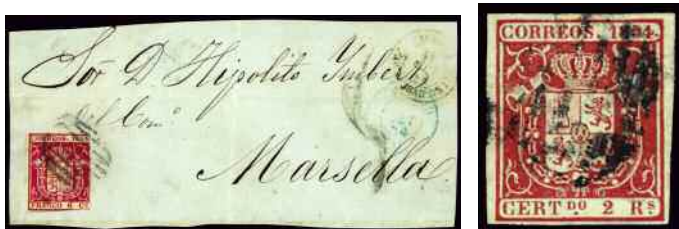 Sor D Hipolito Imbert
del Com.º
Marsella
FRANCO 6 Cs
CORREOS. 1854.
CERT.DO 2 Rs